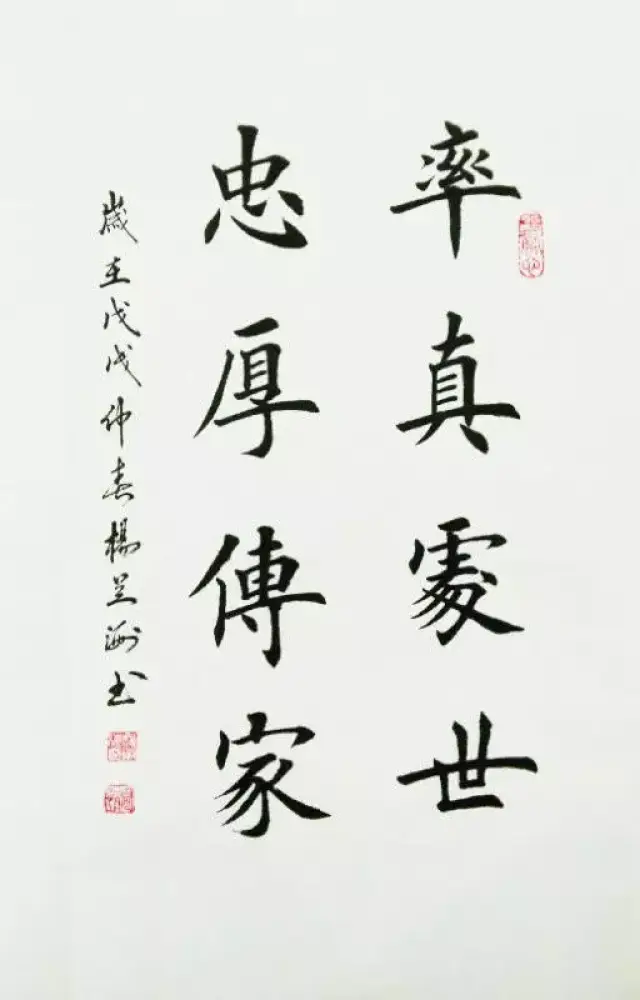 率真處世
忠厚傳家
歲在戊戌仲春楊兰洲書